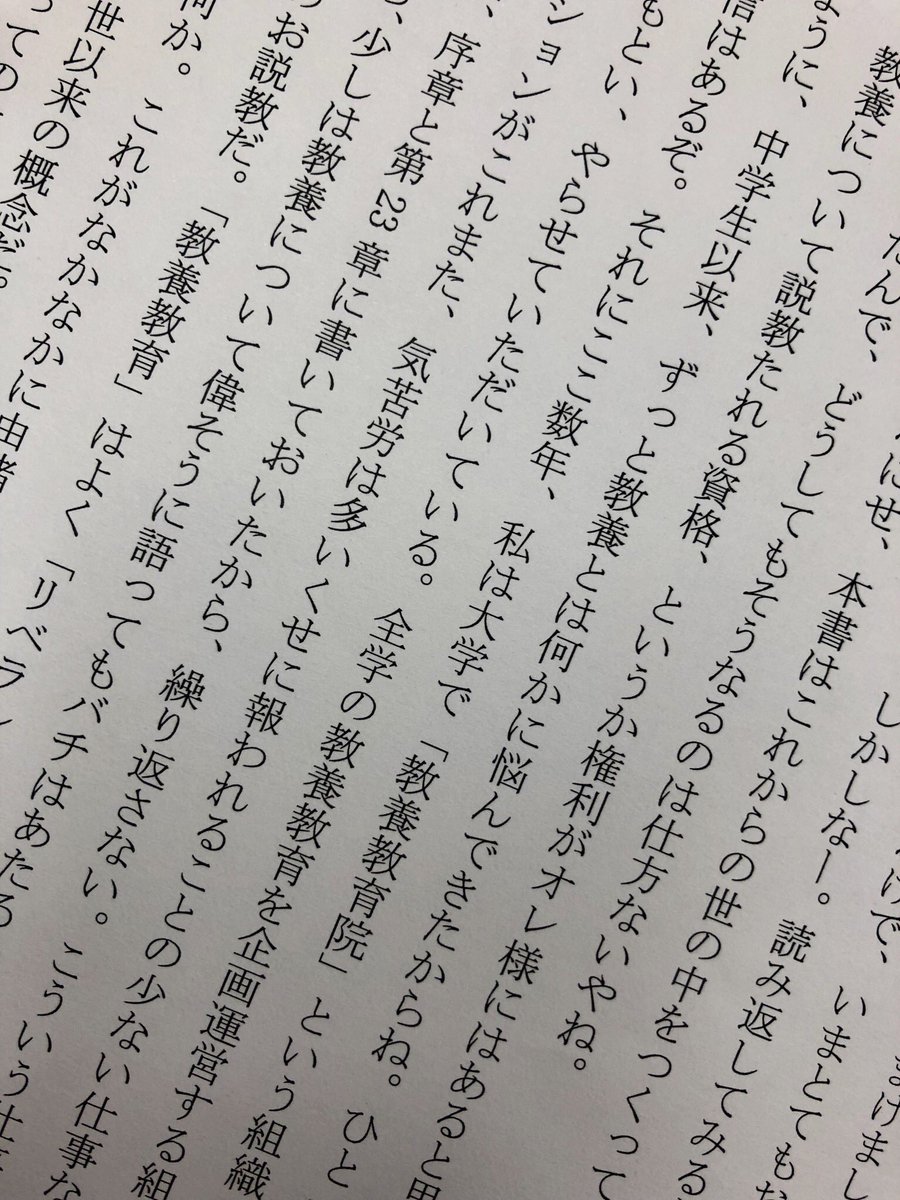 まけまし
けで、いまとてもな
しかしなー。読み返してみる
にせ、本書はこれからの世の中をつくって
なんで、どうしてもそうなるのは仕方ないやね。
教養について説教たれる資格、というか権利がオレ様にはあると思
ように、中学生以来、ずっと教養とは何かに悩んできたからね。ひと
信はあるぞ。それにここ数年、私は大学で「教養教育院」という組織
もとい、やらせていただいている。全学の教養教育を企画運営する組
ションがこれまた、気苦労は多いくせに報われることの少ない仕事な
、序章と第23章に書いておいたから、繰り返さない。こういう仕事
、少しは教養について偉そうに語ってもバチはあたる
お説教だ。「教養教育」はよく「リベラ
何か。これがなかなかに由緒
世以来の概念だ。
っての